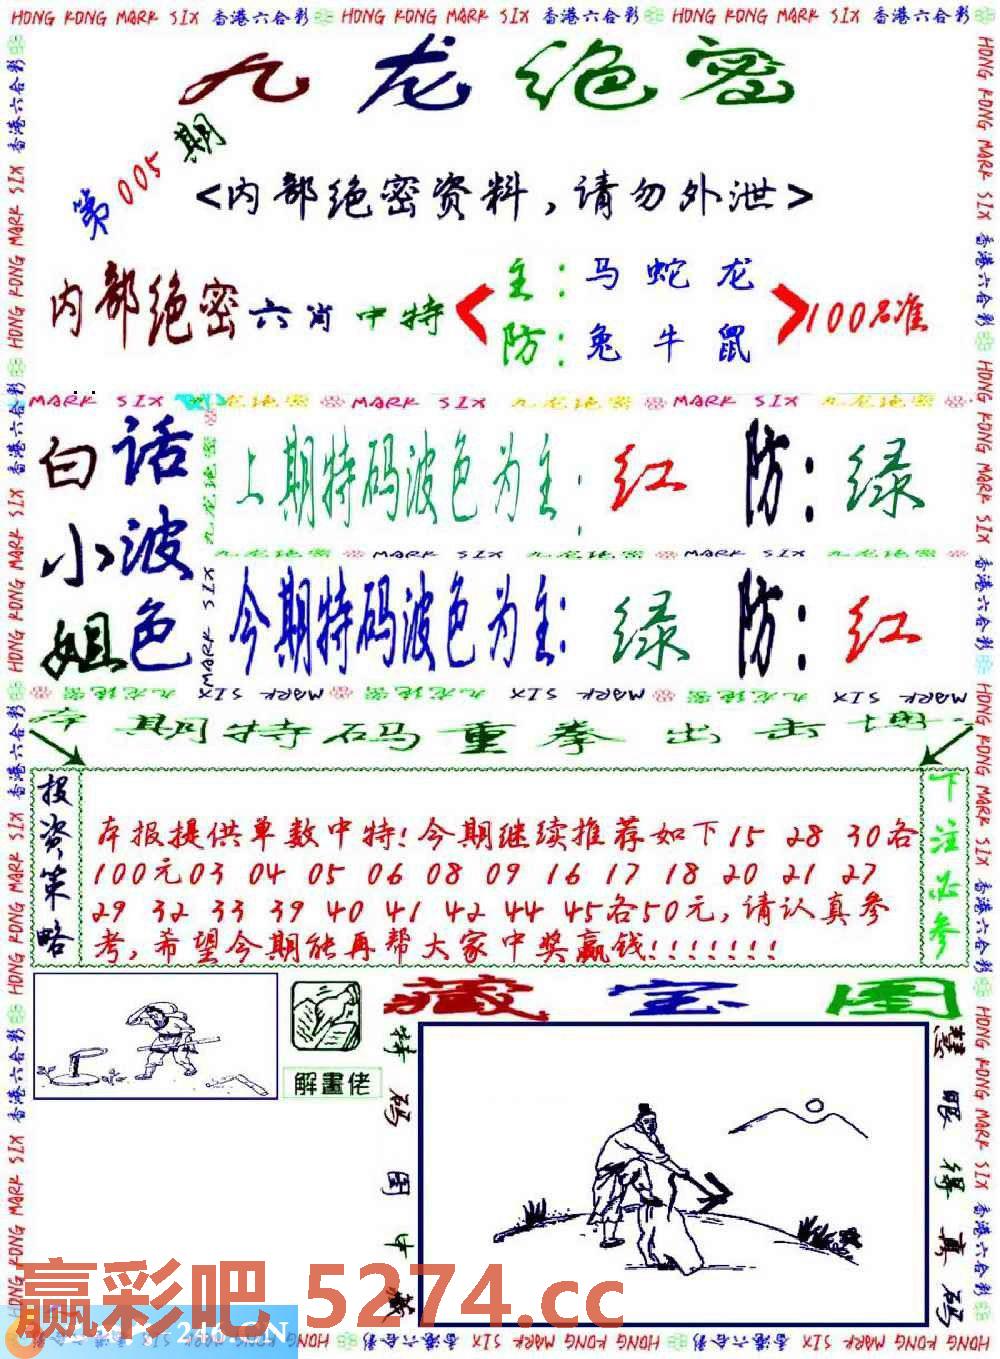 HONG KONG MARK SIX 香港六合彩 HONG KONG MARK SIX 香港六合彩 HONG KONG MARK SIX 香港六合彩
九龙绝密
第005期
<内部绝密资料,请勿外泄>
内部绝密六肖中特
主:马蛇龙
防:兔牛鼠
100%准
MARK SIX 九龙绝密 MARK SIX 九龙绝密 MARK SIX 九龙绝密
白小姐
话波色
上期特码波色为主:红 防:绿
九龙绝密 MARK SIX 九龙绝密 MARK SIX 九龙绝密
今期特码波色为主:绿 防:红
本期特码重拳出击
投资策略
本报提供单数中特!今期继续推荐如下15 28 30各
100元03 04 05 06 08 09 16 17 18 20 21 27
29 32 33 39 40 41 42 44 45各50元,请认真参
考,希望今期能再帮大家中奖赢钱!!!!!!!
下注必参
藏宝图
解畫佬
特码图中藏
慧眼得真码
赢彩吧 5274.cc
246.CN